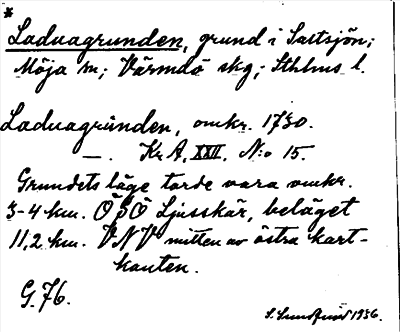 *
Laduagrunden, grund i Saltsjön;
Möja sn; Värmdö skg; Sthlms l.
Laduagrunden, omkr. 1730.
—. Kr A, XXII, N:o 15.
Grundets läge torde vara omkr.
3-4 km. ÖSÖ Ljusskär, beläget
11,2 km. VNV mitten av östra kart-
kanten.
G. 76.
1936.